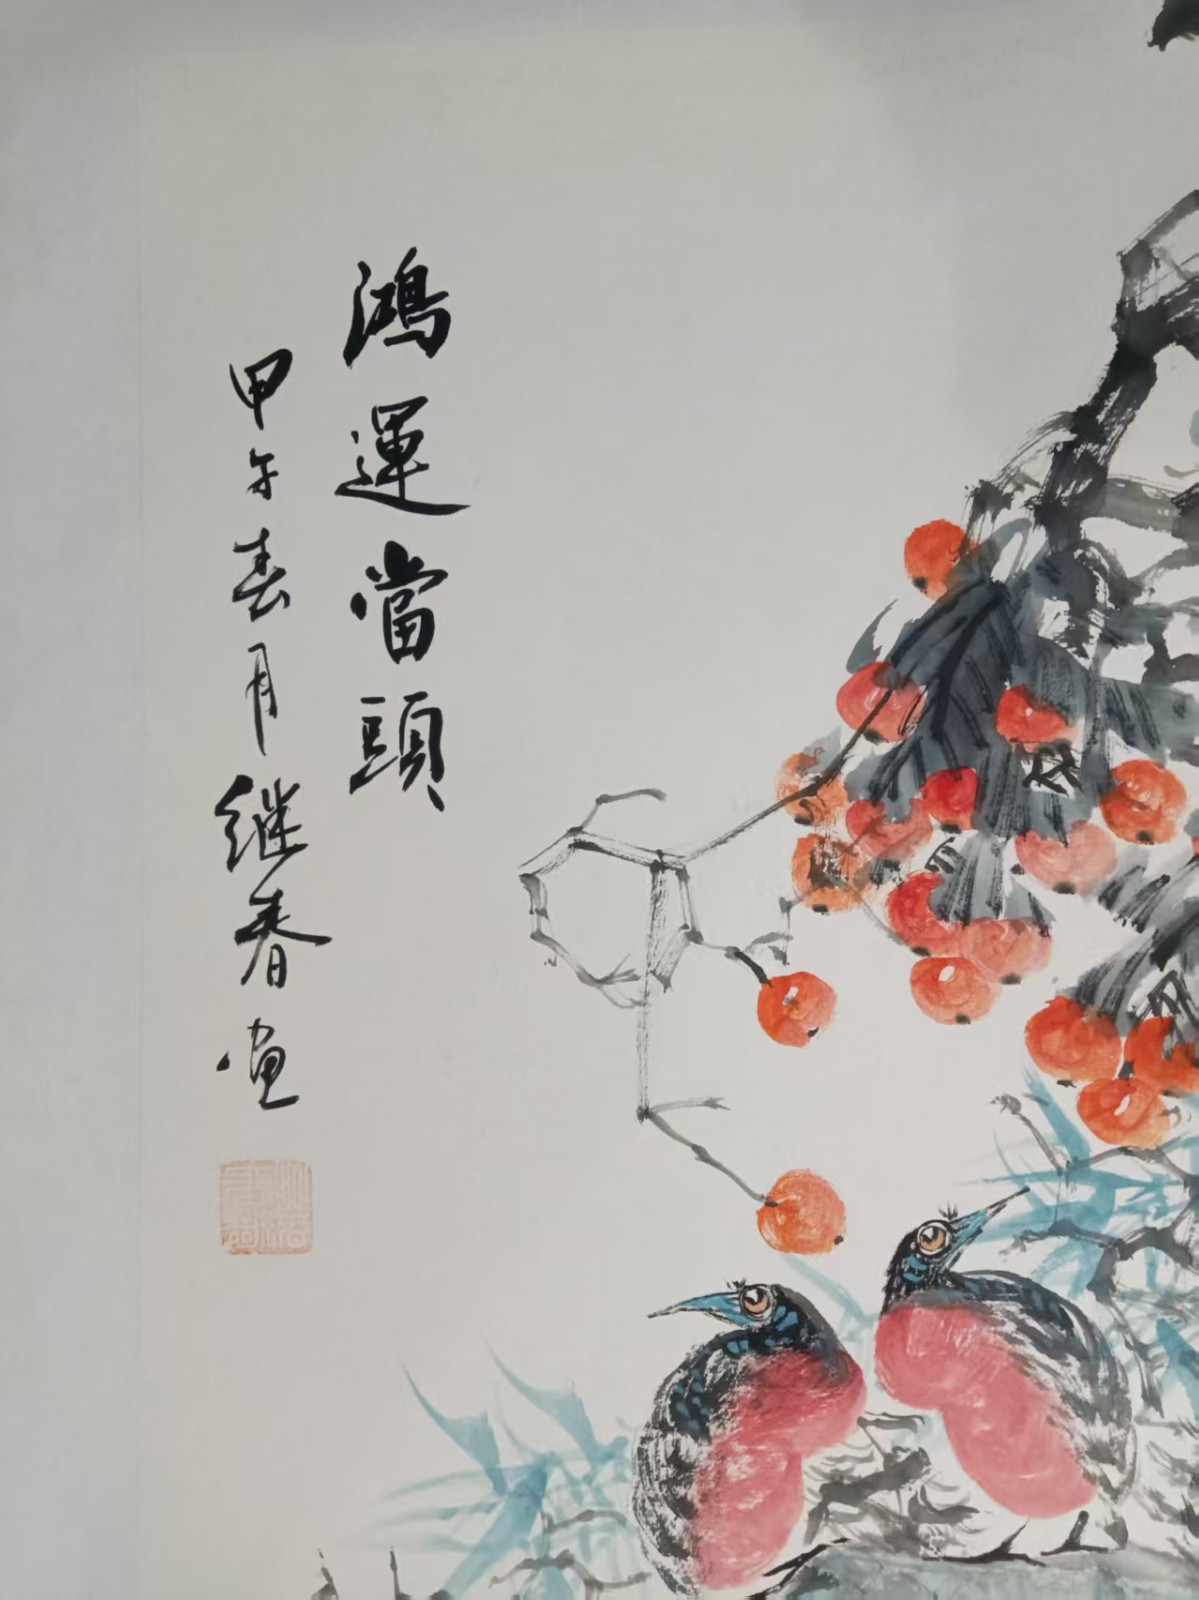 鴻運當頭
甲午春月继春画